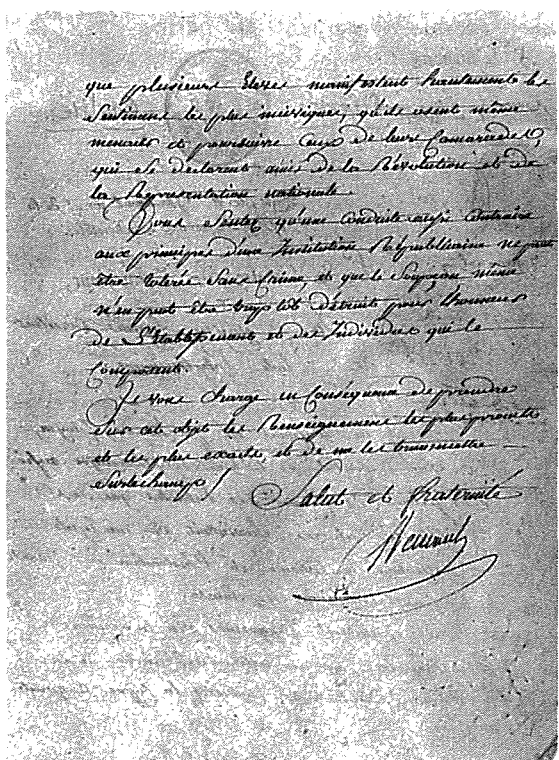 que plusieurs Eleves manifestent hautement les
Sentimens les plus inciviques, qu'ils osent même
menacer et poursuivre Ceux de leurs Camarades,
qui se déclarent amis de la Révolution et de
la Représentation nationale.
Vous Sentez qu'une Conduite aussi Contraire
aux principes d'une Institution Républicaine ne peut
être tolérée Sans Crime, et que le Soupçon même
n'en peut être trop tôt détruit pour l'honneur
de L'Etablissement et des Individus qui le
Composent.
Je vous Charge en Conséquence de prendre
Sur cet objet les Renseignemens les plus prompts
et les plus exacts, et de me les transmettre
Surlechamp /
Salut et fraternité